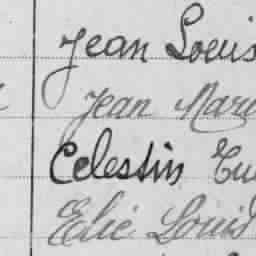 Jean Louis
Jean Mari
Celestin
Elie Louis